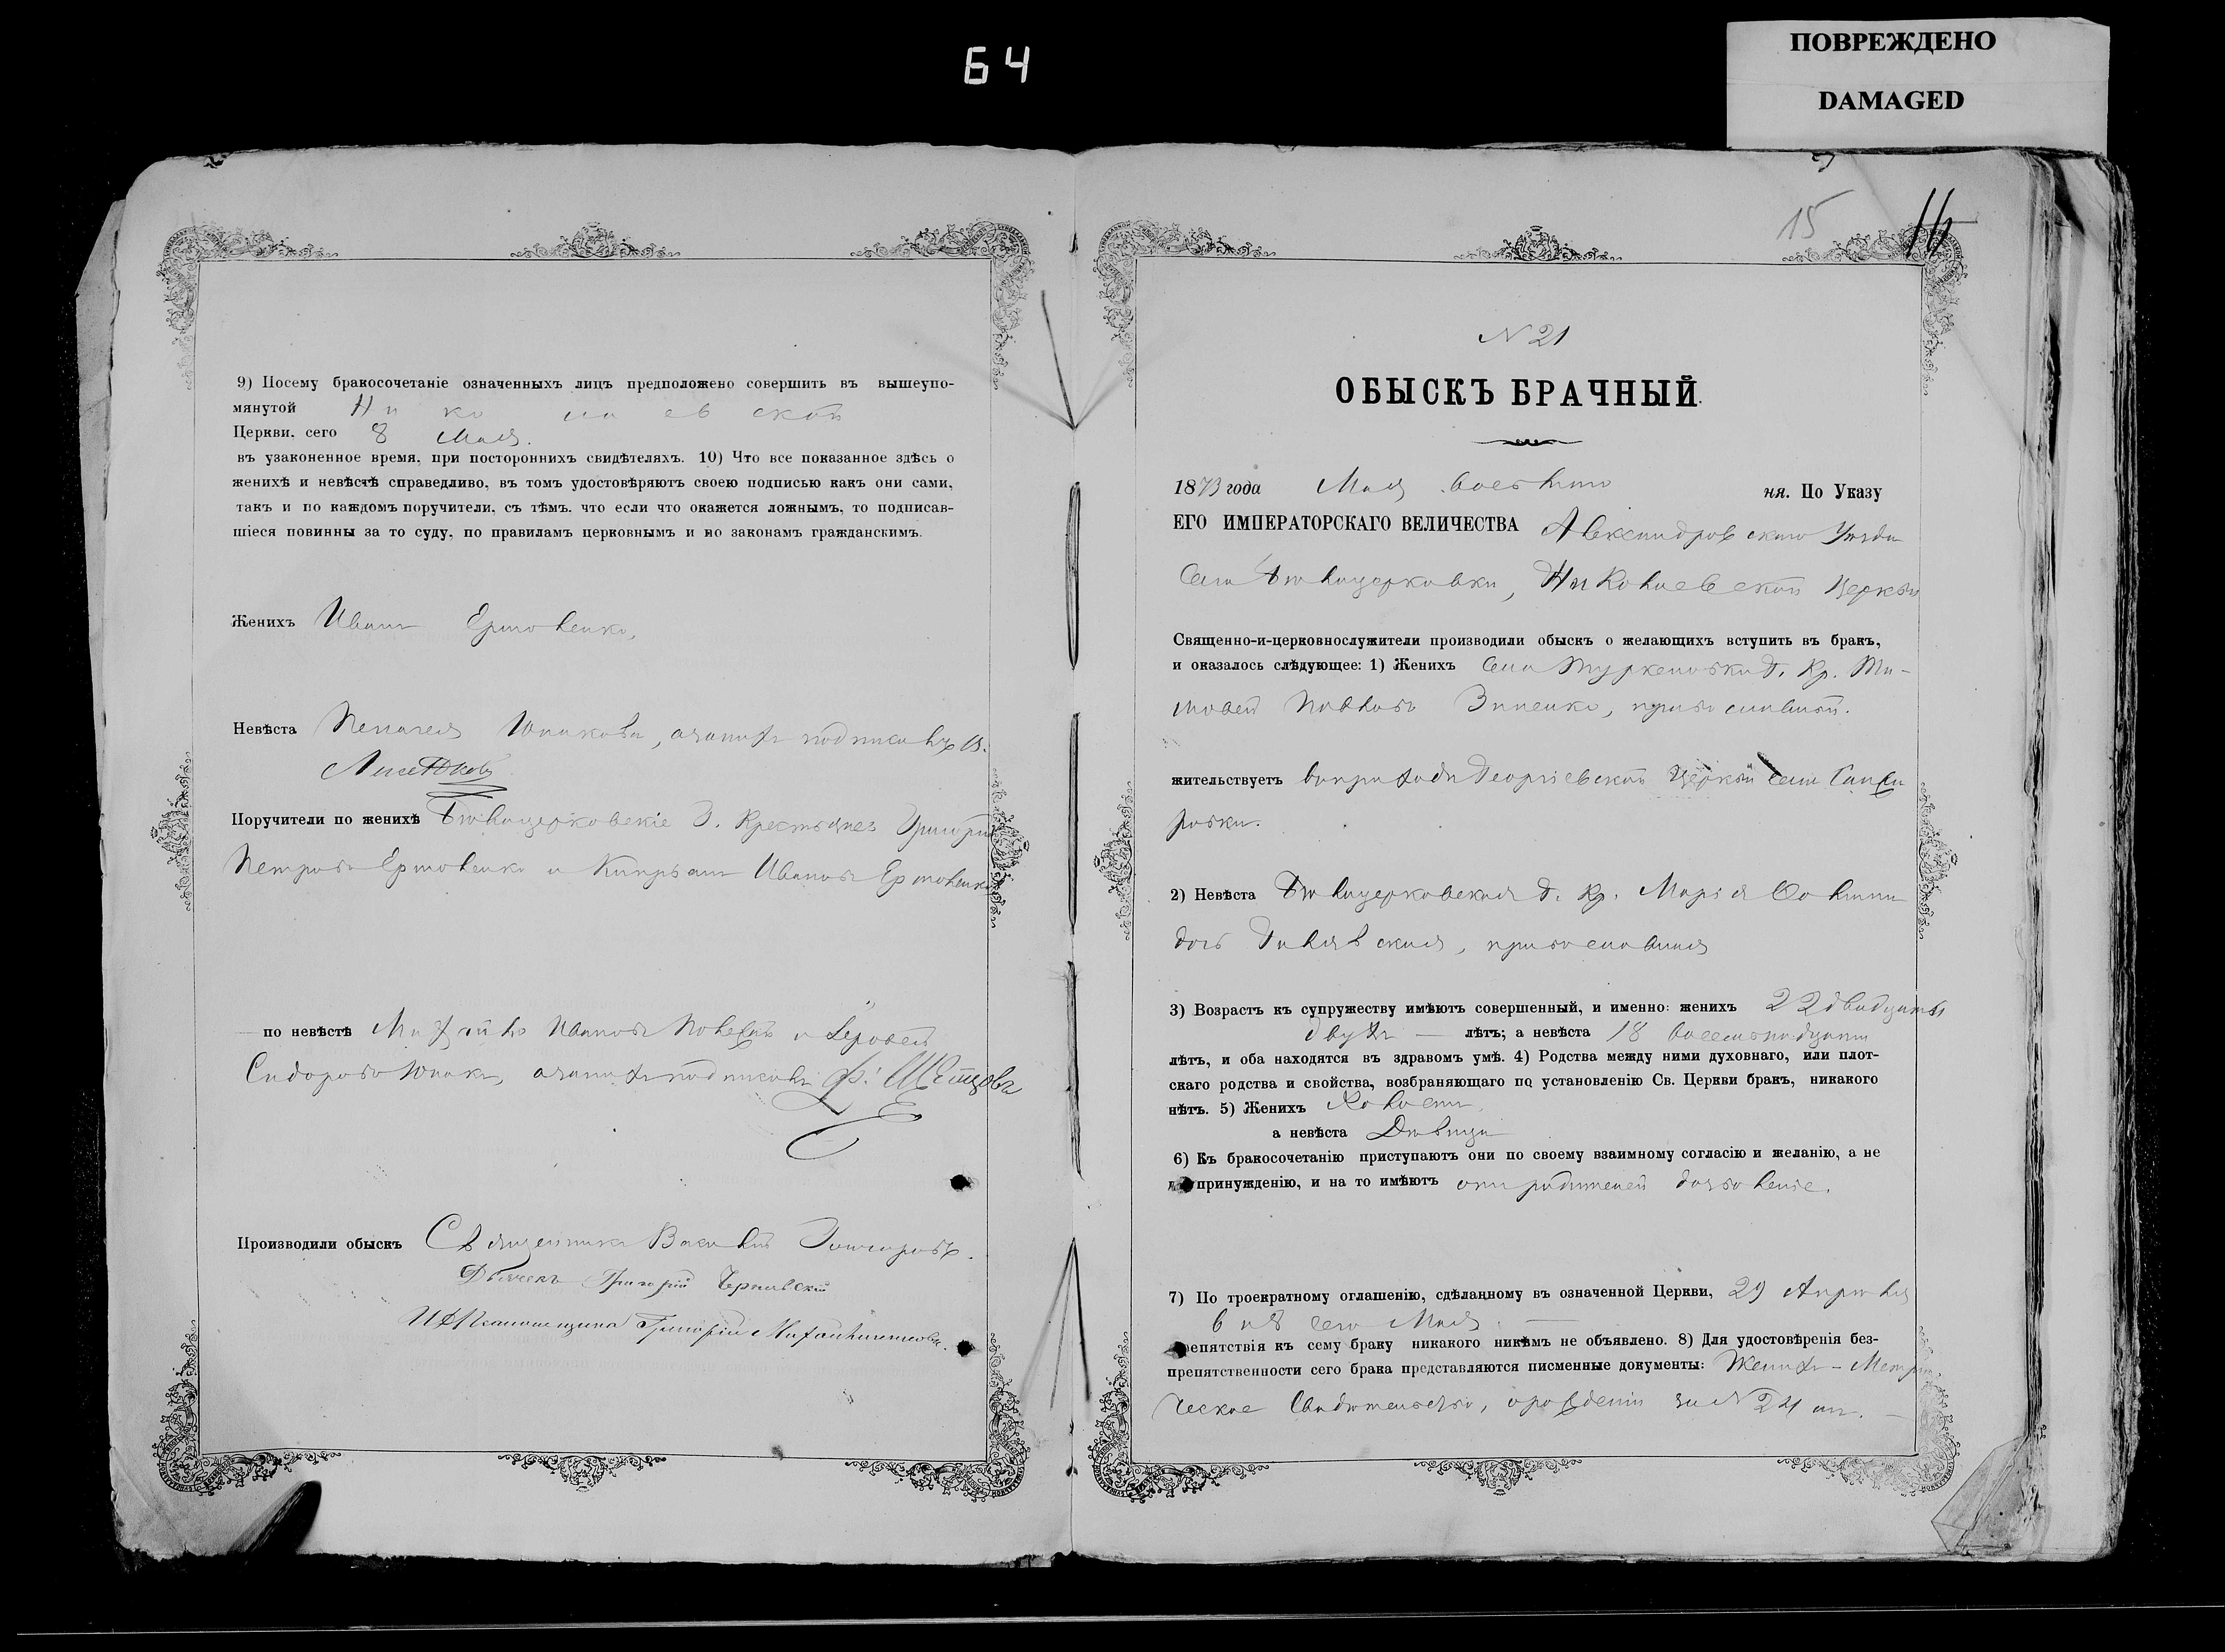 64
ПОВРЕЖДЕНО
DAMAGED
9) Посему бракосочетаніе означенныхъ лицъ предположено совершить въ вышеупо-
мянутой Николаевской
Церкви, сего 8 Мая.
въ узаконенное время, при постороннихъ свидѣтеляхъ. 10) Что все показанное здѣсь о
женихѣ и невѣстѣ справедливо, въ томъ удостовѣряютъ своею подписью какъ они сами,
такъ и по каждомъ поручители, съ тѣмъ, что если что окажется ложнымъ, то подписав-
шіеся повинны за то суду, по правиламъ церковнымъ и по законамъ гражданскимъ.
Женихъ Иванъ Ермоленко,
Невѣста Пелагея Юнакова, а за нихъ подписался
Поручители по женихѣ Бѣлоцерковскіе Г. Крестьяне Григорій
Петровъ Ермоленко и Кипріанъ Ивановъ Ермоленко
по невѣстѣ Михайло Ивановъ и Ероѳей
Сидоровъ Юнакъ, а за нихъ подписался
Производили обыскъ Священникъ Василій Гончаровъ.
Дьячекъ Григорій Чернявскій
И Д Псаломщика Григорій
15
16
N 21
ОБЫСКЪ БРАЧНЫЙ.
1873 года Мая восьмаго ня. По Указу
ЕГО ИМПЕРАТОРСКАГО ВЕЛИЧЕСТВА Александровскаго Уѣзда
Села Бѣлоцерковки, Николаевской Церкви
Священно-и-церковнослужители производили обыскъ о желающихъ вступить въ бракъ,
и оказалось слѣдующее: 1) Женихъ Села Туркеновки Г. Кр. Ти-
моѳей Павловъ Зинченко, православный.
жительствуетъ въ приходѣ Георгіевской Церкви села
ровки.
2) Невѣста Бѣлоцерковская Г. Кр. Марія Ѳомина
дочь православная
3) Возрастъ къ супружеству имѣютъ совершенный, и именно: женихъ 22 двадцать
двухъ — лѣтъ; а невѣста 18 восемьнадцати
лѣтъ, и оба находятся въ здравомъ умѣ. 4) Родства между ними духовнаго, или плот-
скаго родства и свойства, возбраняющаго по установленію Св. Церкви бракъ, никакого
нѣтъ. 5) Женихъ Холостъ,
а невѣста Дѣвица
6) Къ бракосочетанію приступаютъ они по своему взаимному согласію и желанію, а не
принужденію, и на то имѣютъ отъ родителей дозволеніе.
7) По троекратному оглашенію, сдѣланному въ означенной Церкви, 29 Апрѣля
6 и 8 сего Мая —
репятствія къ сему браку никакого никѣмъ не объявлено. 8) Для удостовѣренія без-
препятственности сего брака представляются писменные документы: Женихъ - Метри
ческое Свидѣтельство, о рожденіи за N 241 мъ. —